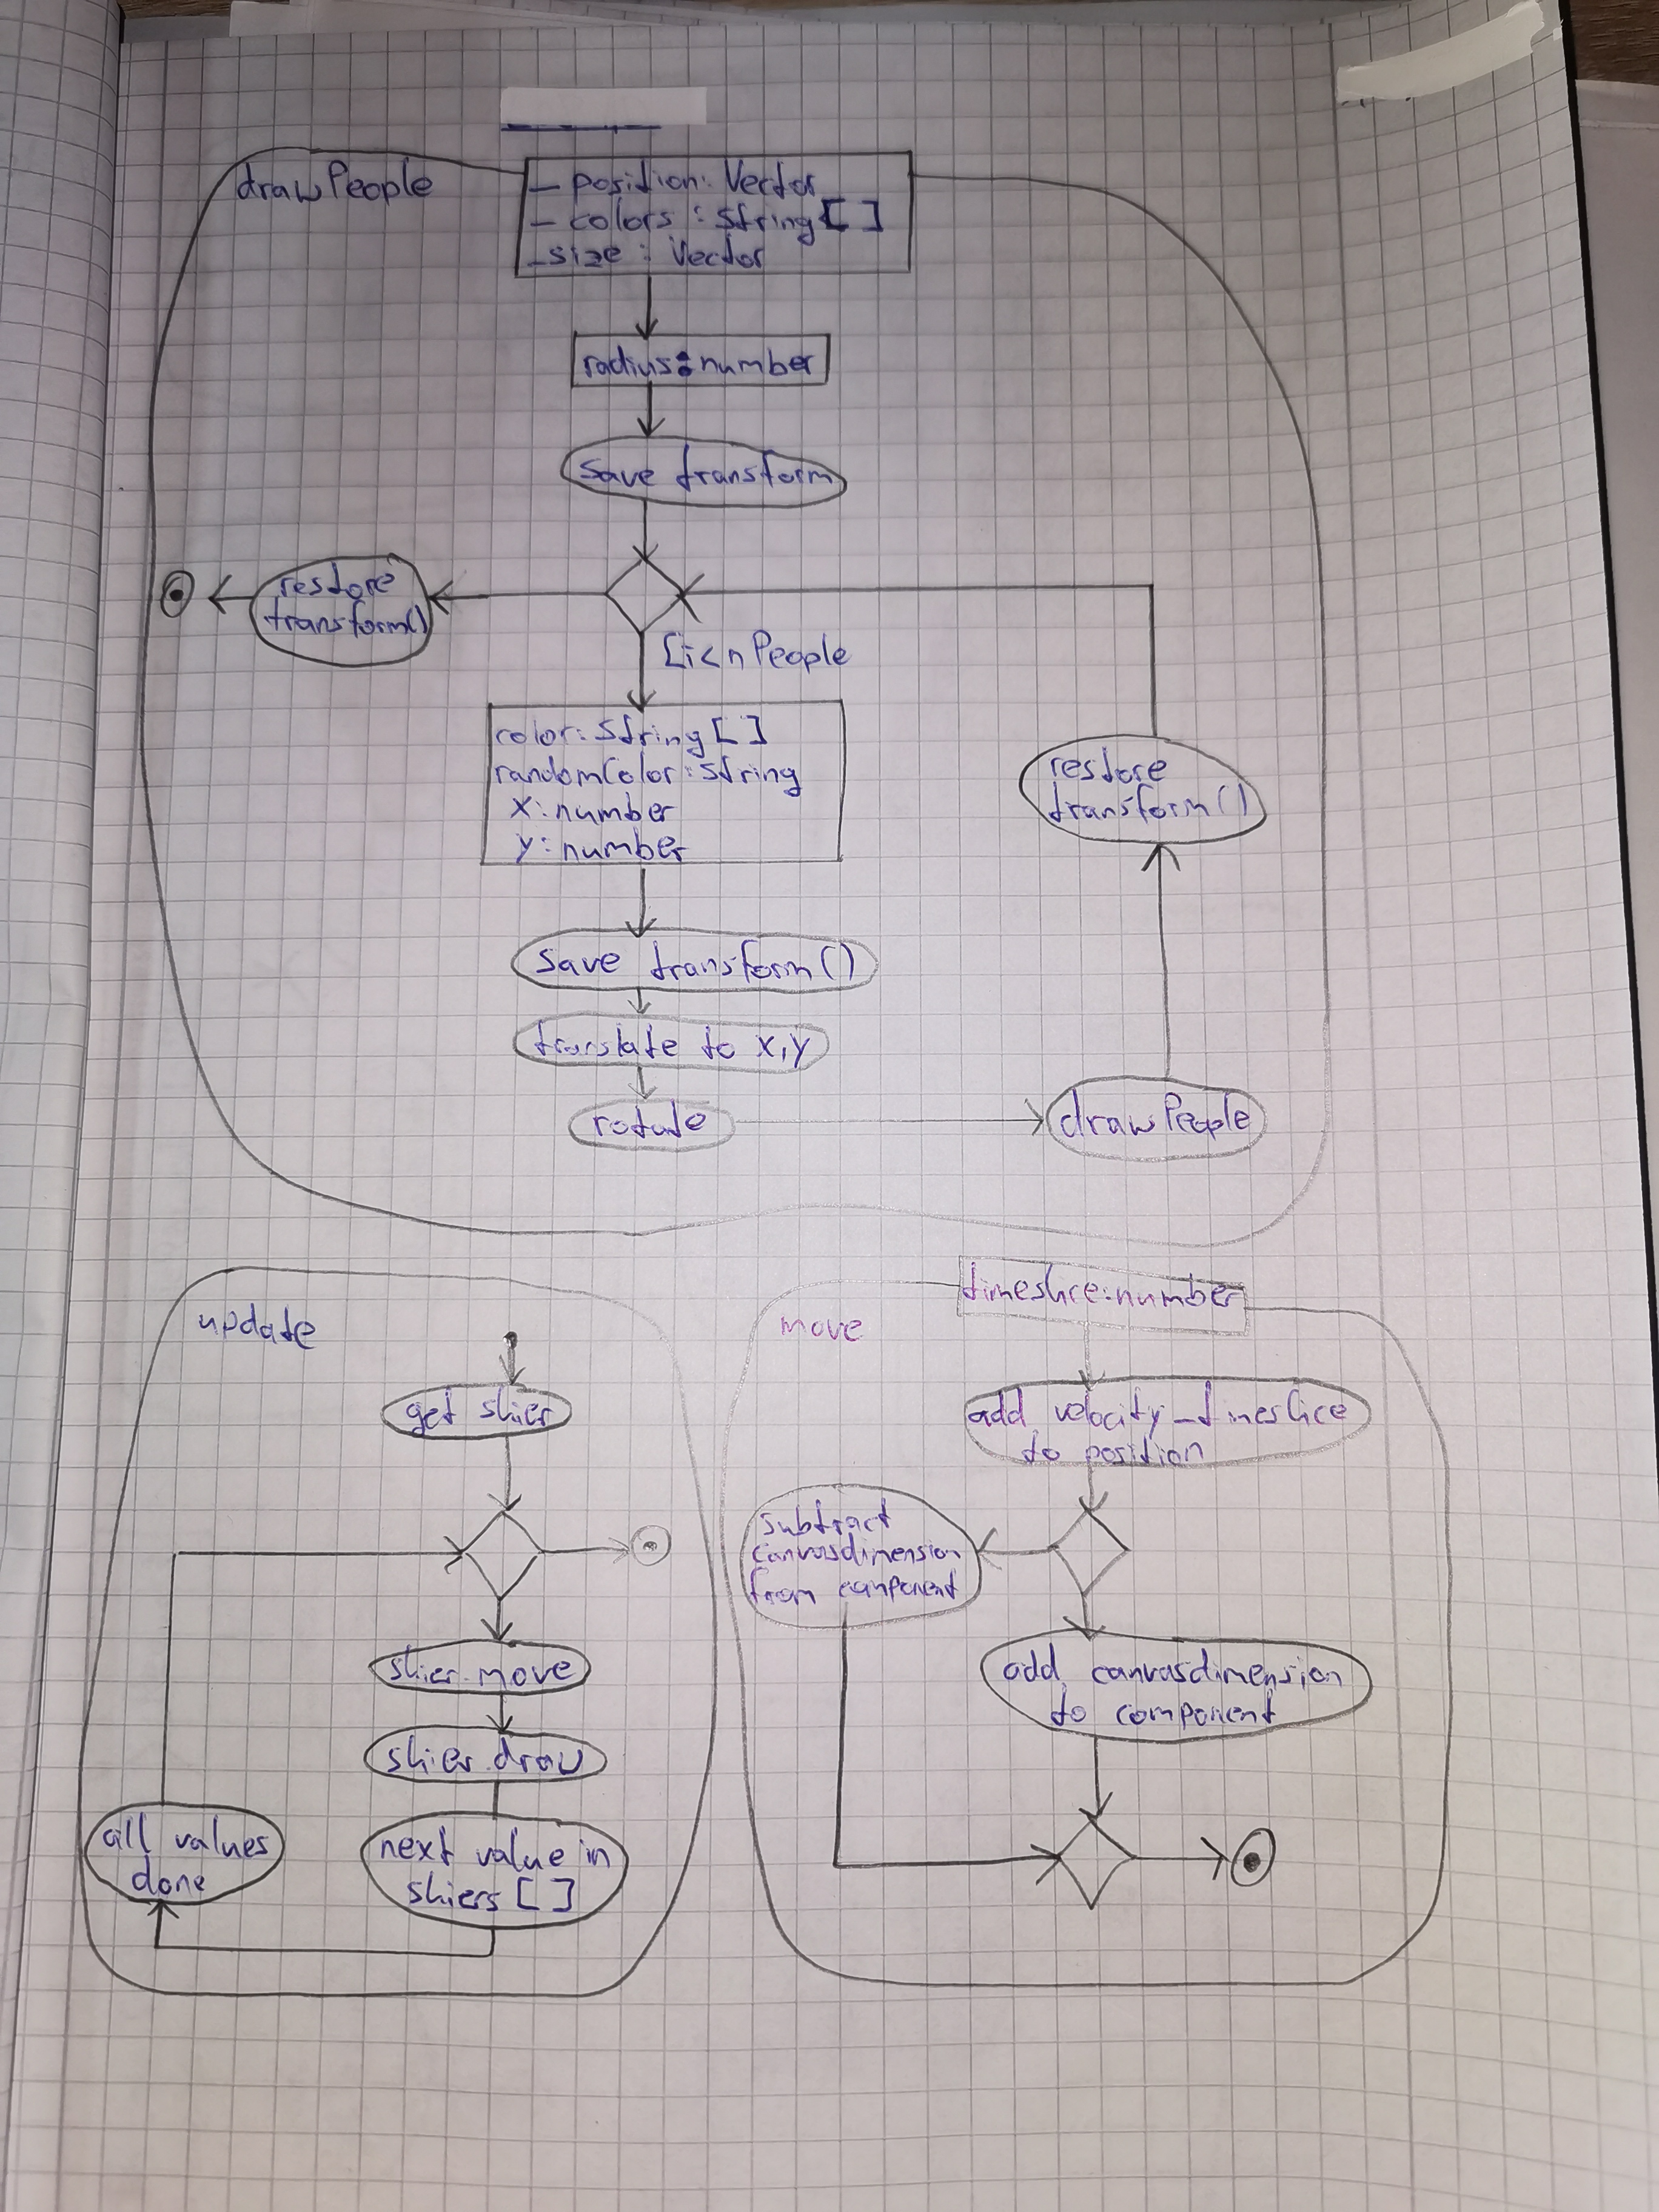 drawPeople
- position: Vector
- colors : String[]
- size : Vector
radius: number
save transform
restore
transform()
[i<nPeople
color: String[]
randomColor: String
x: number
y: number
restore
transform()
save transform()
translate to x,y
rotate
drawPeople
update
get skier
skier move
skier draw
next value in
skiers []
all values
done
timeslice: number
move
add velocity_timeslice
to position
subtract
canvasdimension
from component
add canvasdimension
to component